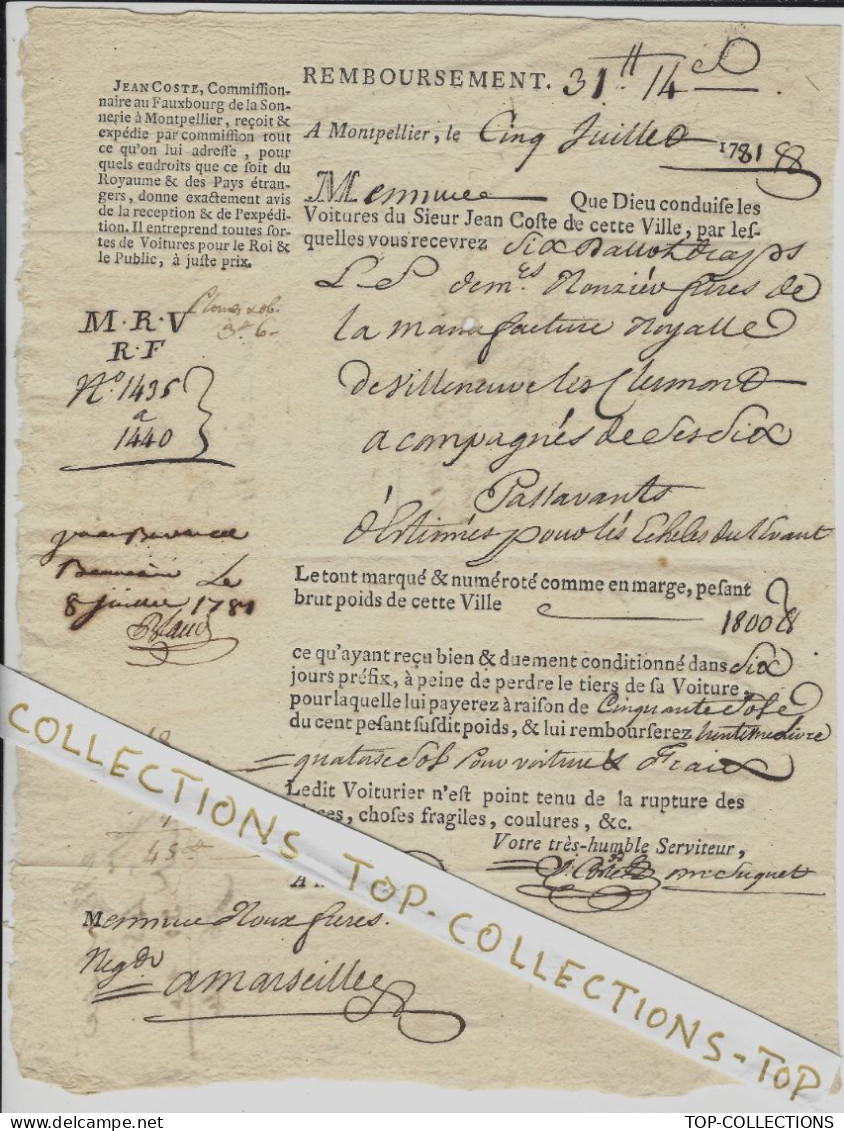 REMBOURSEMENT. 31 ᵗᵗ 14 s
JEAN COSTE, Commission-
naire au Fauxbourg de la Son-
nerie à Montpellier, reçoit &
expédie par commission tout
ce qu'on lui adresse, pour
quels endroits que ce soit du
Royaume & des Pays étran-
gers, donne exactement avis
de la reception & de l'expédi-
tion. Il entreprend toutes sor-
tes de Voitures pour le Roi &
le Public, à juste prix.
A Montpellier, le Cinq Juillet 1781
Messieurs Que Dieu conduise les
Voitures du Sieur Jean Coste de cette Ville, par les-
quelles vous recevrez Six Ballots draps
de mes frères de
la manufacture Royalle
de Villeneuve les Clermont
acompagnés de ses Six
Passavants
déstinés pour les Echeles du Levant
M·R·V
R·F
Nº 1435
a
1440
Le
8 juillet 1781
Le tout marqué & numéroté comme en marge, pesant
brut poids de cette Ville 1800 tt
ce qu'ayant reçu bien & duement conditionné dans Six
jours préfix, à peine de perdre le tiers de sa Voiture,
pour laquelle lui payerez à raison de Cinquante Sols
du cent pesant susdit poids, & lui rembourserez trente une livre
quatorse Sol pour voiture & Fraix
Ledit Voiturier n'est point tenu de la rupture des
choses fragiles, coulures, &c.
Votre très-humble Serviteur,
45
A
Messieurs Roux freres.
Negts
a marseille
COLLECTIONS TOP-COLLECTIONS-TOP
TOP-COLLECTIONS